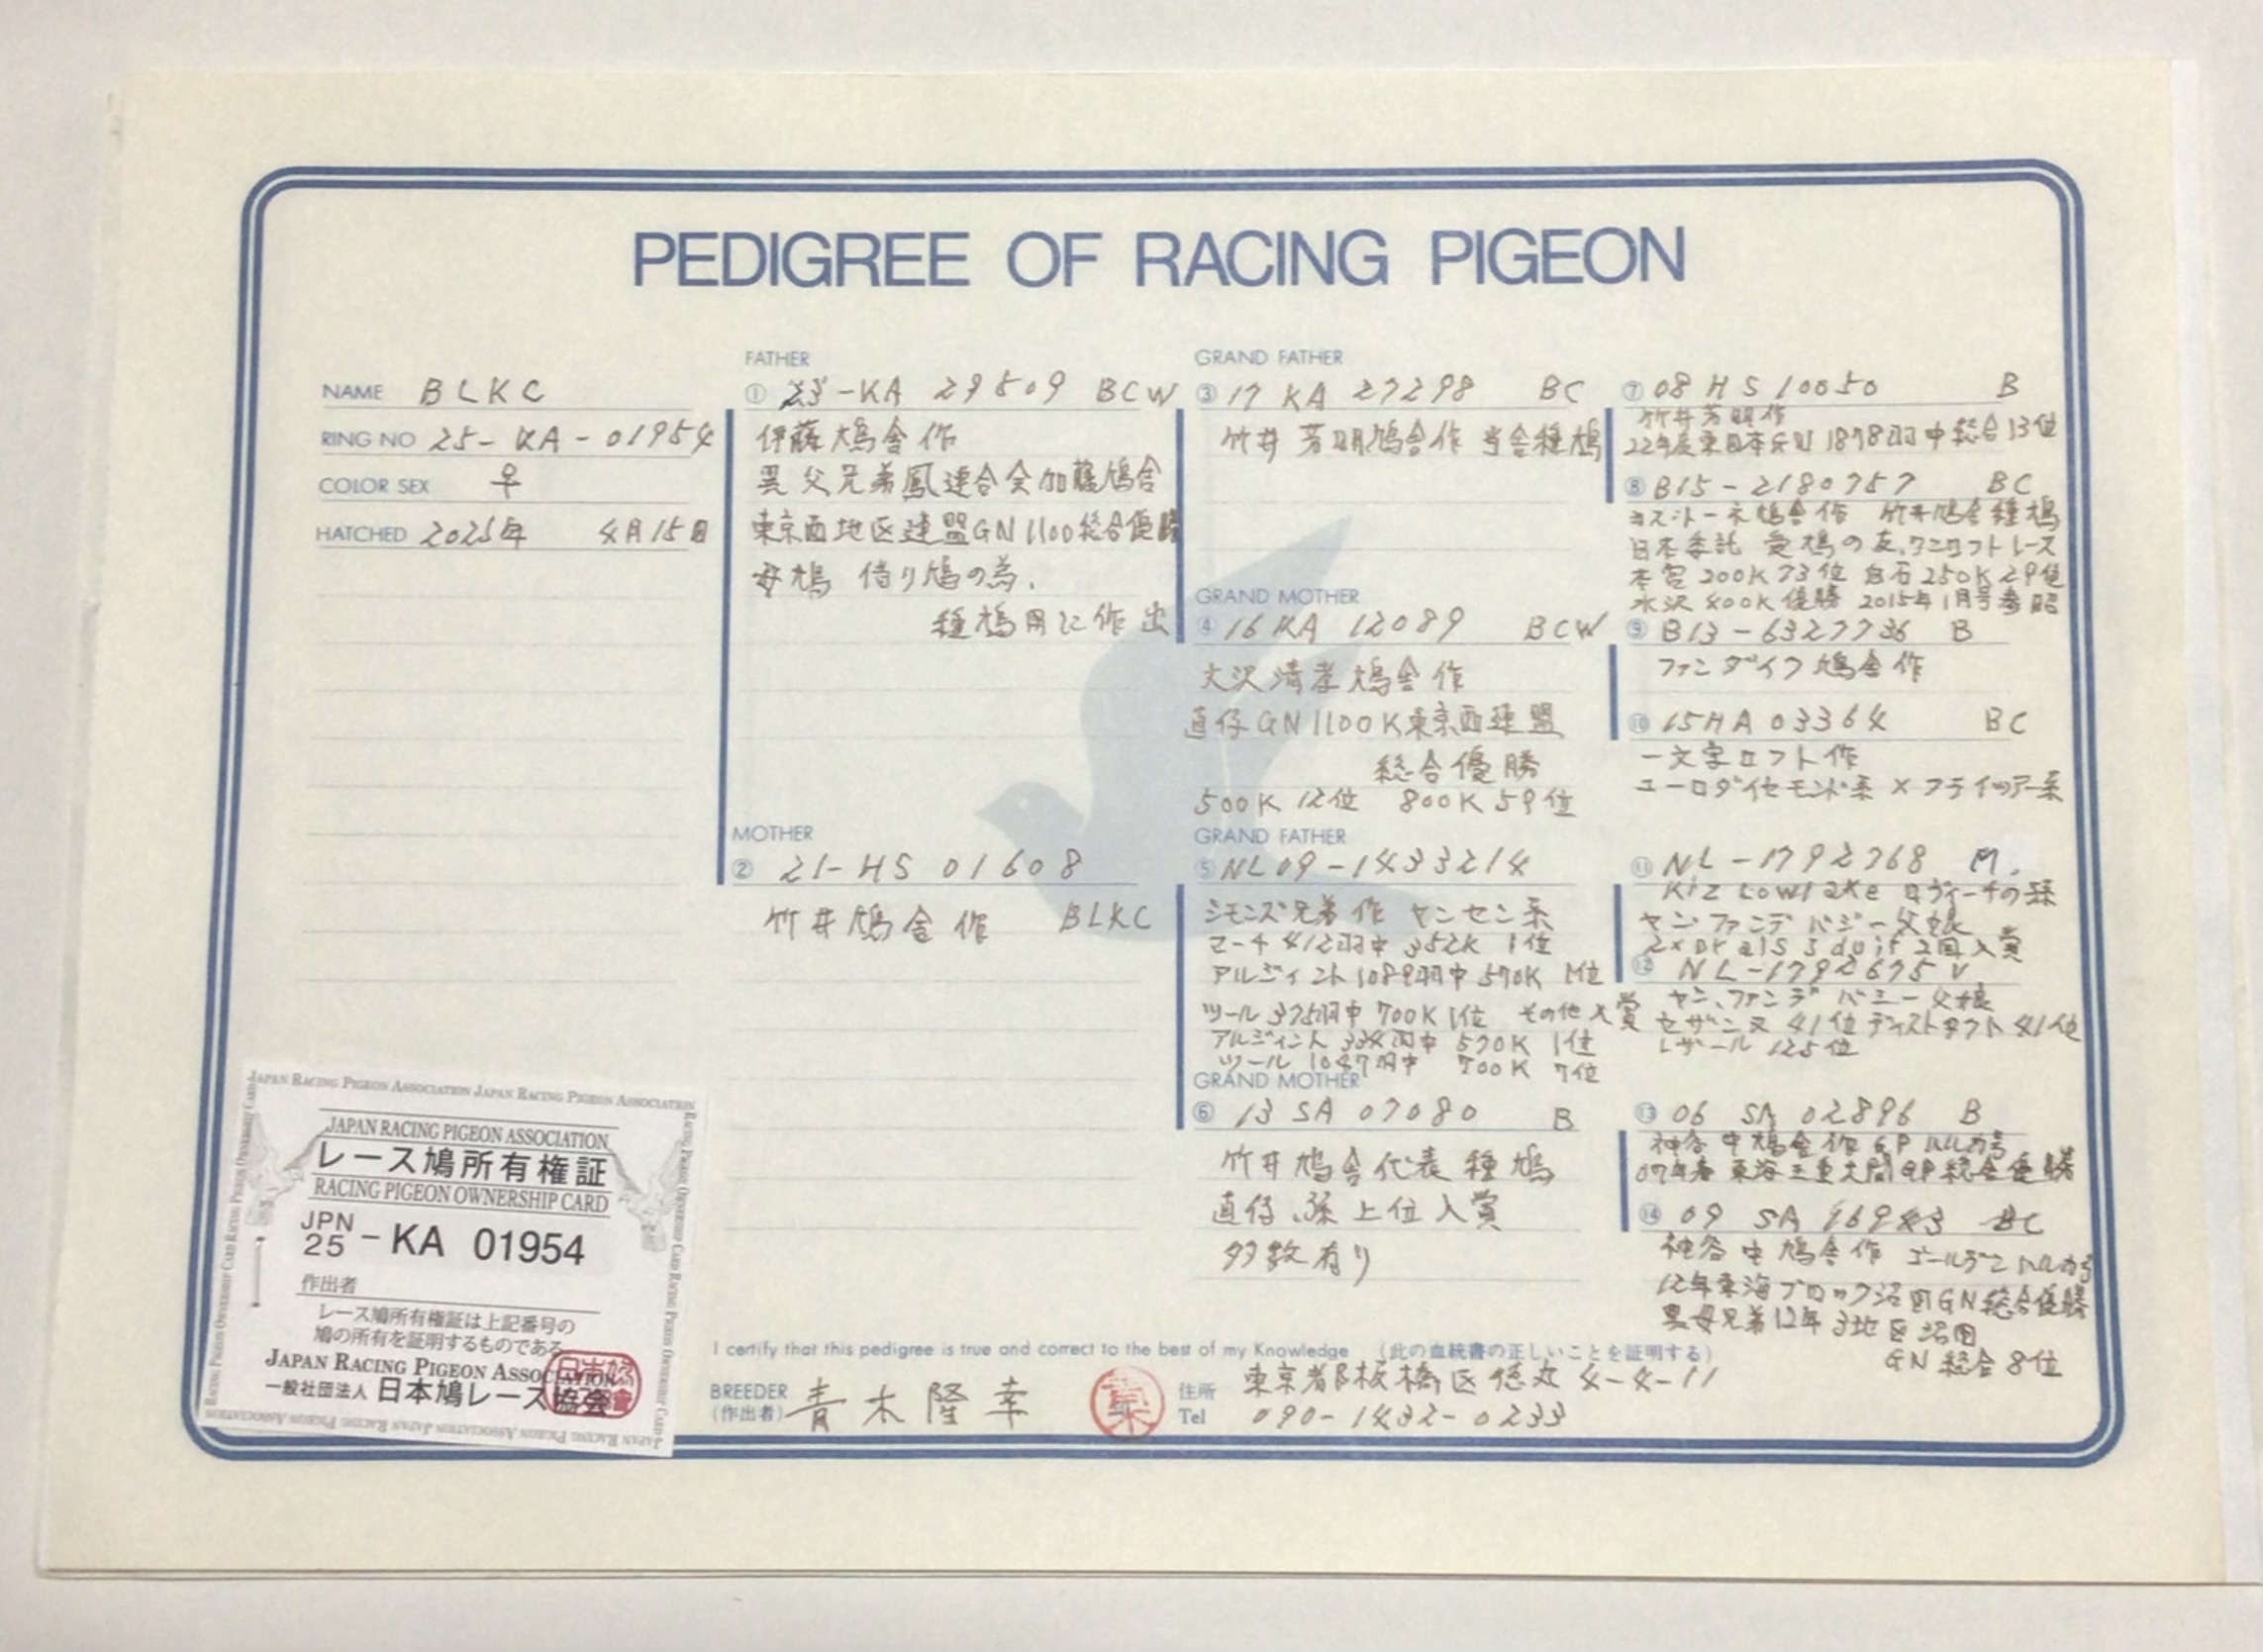 PEDIGREE OF RACING PIGEON
NAME BLKC
RING NO 25-KA-01954
COLOR SEX ♀
HATCHED 2025年 4月15日
FATHER
① 23-KA 29509 BCW
伊藤鳩舎作
異父兄弟鳳連合会加藤鳩舎
東京西地区連盟GN1100総合優勝
母鳩 借り鳩の為.
種鳩用に作出
MOTHER
② 21-HS 01608
竹井鳩舎作 BLKC
GRAND FATHER
③ 17 KA 27298 BC
竹井芳明鳩舎作 当舎種鳩
GRAND MOTHER
④ 16 KA 12089 BCW
大沢清孝鳩舎作
直仔GN1100K東京西連盟
総合優勝
500K 12位 800K 59位
GRAND FATHER
⑤ NL09-1433214
シモンズ兄弟作 ヤンセン系
マーチ 412羽中 352K 1位
アルジィント 1089羽中 570K 1位
ツール 375羽中 700K 1位 その他入賞
アルジィント 334羽中 570K 1位
ツール 1047羽中 700K 7位
GRAND MOTHER
⑥ 13 SA 07080 B
竹井鳩舎代表種鳩
直仔、孫上位入賞
多数有り
⑦ 08 HS 10050 B
竹井芳明作
22年度東日本 1878羽中総合13位
⑧ B15-2180757 BC
鳩舎作 竹井鳩舎種鳩
日本委託 愛鳩の友,ワンロフトレース
本宮 200K 73位 白石 250K 29位
水沢 400K 優勝 2015年1月号参照
⑨ B13-6327736 B
ファンダイク鳩舎作
⑩ 15HA 03364 BC
一文字ロフト作
ユーロダイヤモンド系 × フライツアー系
⑪ NL-1792768 M.
ヤン・ファンデ パジー父娘
2回入賞
⑫ NL-1792675 V
ヤン、ファンデ パジー父娘
セザンヌ 41位 41位
レザール 125位
⑬ 06 SA 02896 B
神谷中鳩舎作 GP ハルカ号
07年春 東海三重大間GP総合優勝
⑭ 09 SA 16943 BC
神谷中鳩舎作 ゴールデンハルカ号
12年東海ブロック沼田GN総合優勝
異母兄弟12年3地区沼田
GN総合8位
JAPAN RACING PIGEON ASSOCIATION
レース鳩所有権証
RACING PIGEON OWNERSHIP CARD
JPN
25 - KA 01954
作出者
レース鳩所有権証は上記番号の
鳩の所有を証明するものである
JAPAN RACING PIGEON ASSOCIATION
一般社団法人 日本鳩レース協会
I certify that this pedigree is true and correct to the best of my Knowledge (此の血統書の正しいことを証明する)
BREEDER (作出者) 青木隆幸
住所 東京都板橋区徳丸 4-4-11
Tel 090-1432-0233